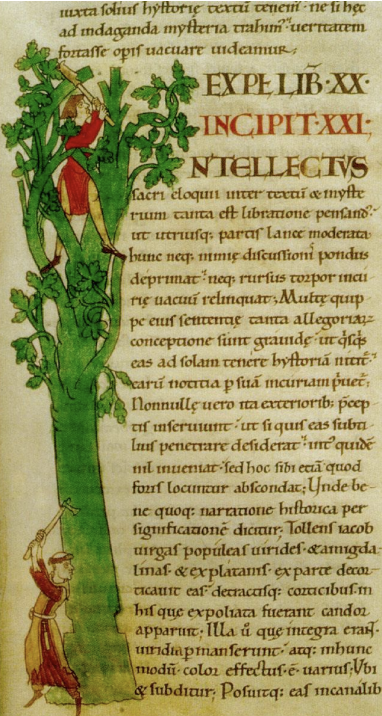 iuxta solius hystorię textū tenem̄ ne si hęc
ad indaganda mysteria trahim᷒ veritatem
fortasse opis vacuare uideamur;
EXPŁ LIB̄·XX·
INCIPIT·XXI·
NTELLECTVS
sacri eloquii inter textū & myste
rium tanta est libratione pensand᷒
ut utriusq; partis lance moderata
hunc neq; nimię discussionis pondus
deprimat neq; rursus torpor incu
rię vacuū relinquat; Multę quip
pe eius sententię tanta allegoriarz
conceptione sunt grauidę ut qͥsqͥs
eas ad solam tenere hystoriā nitit᷒
earū notitia p suā incuriam pͥuet᷒;
Nonnullę uero ita exteriorib; p̄cep
tis inseruiunt ut si quis eas subti
lius penetrare desiderat int᷒ quidē
nil inueniat sed hoc sibi etiā quod
foris locuntur abscondat; Unde be
ne quoq; narratione historica per
significationē dicitur; Tollens iacob
uirgas populeas uirides & amigda
linas & ex platanis ex parte decor
ticauit eas detractisq; corticibus in
his que expoliata fuerant candor
apparuit; Illa ū que integra eran̄t
uiridia pmanserunt atq; in hunc
modū color effectus ē uarius; Ubi
& subditur; Posuitq; eas in canalib